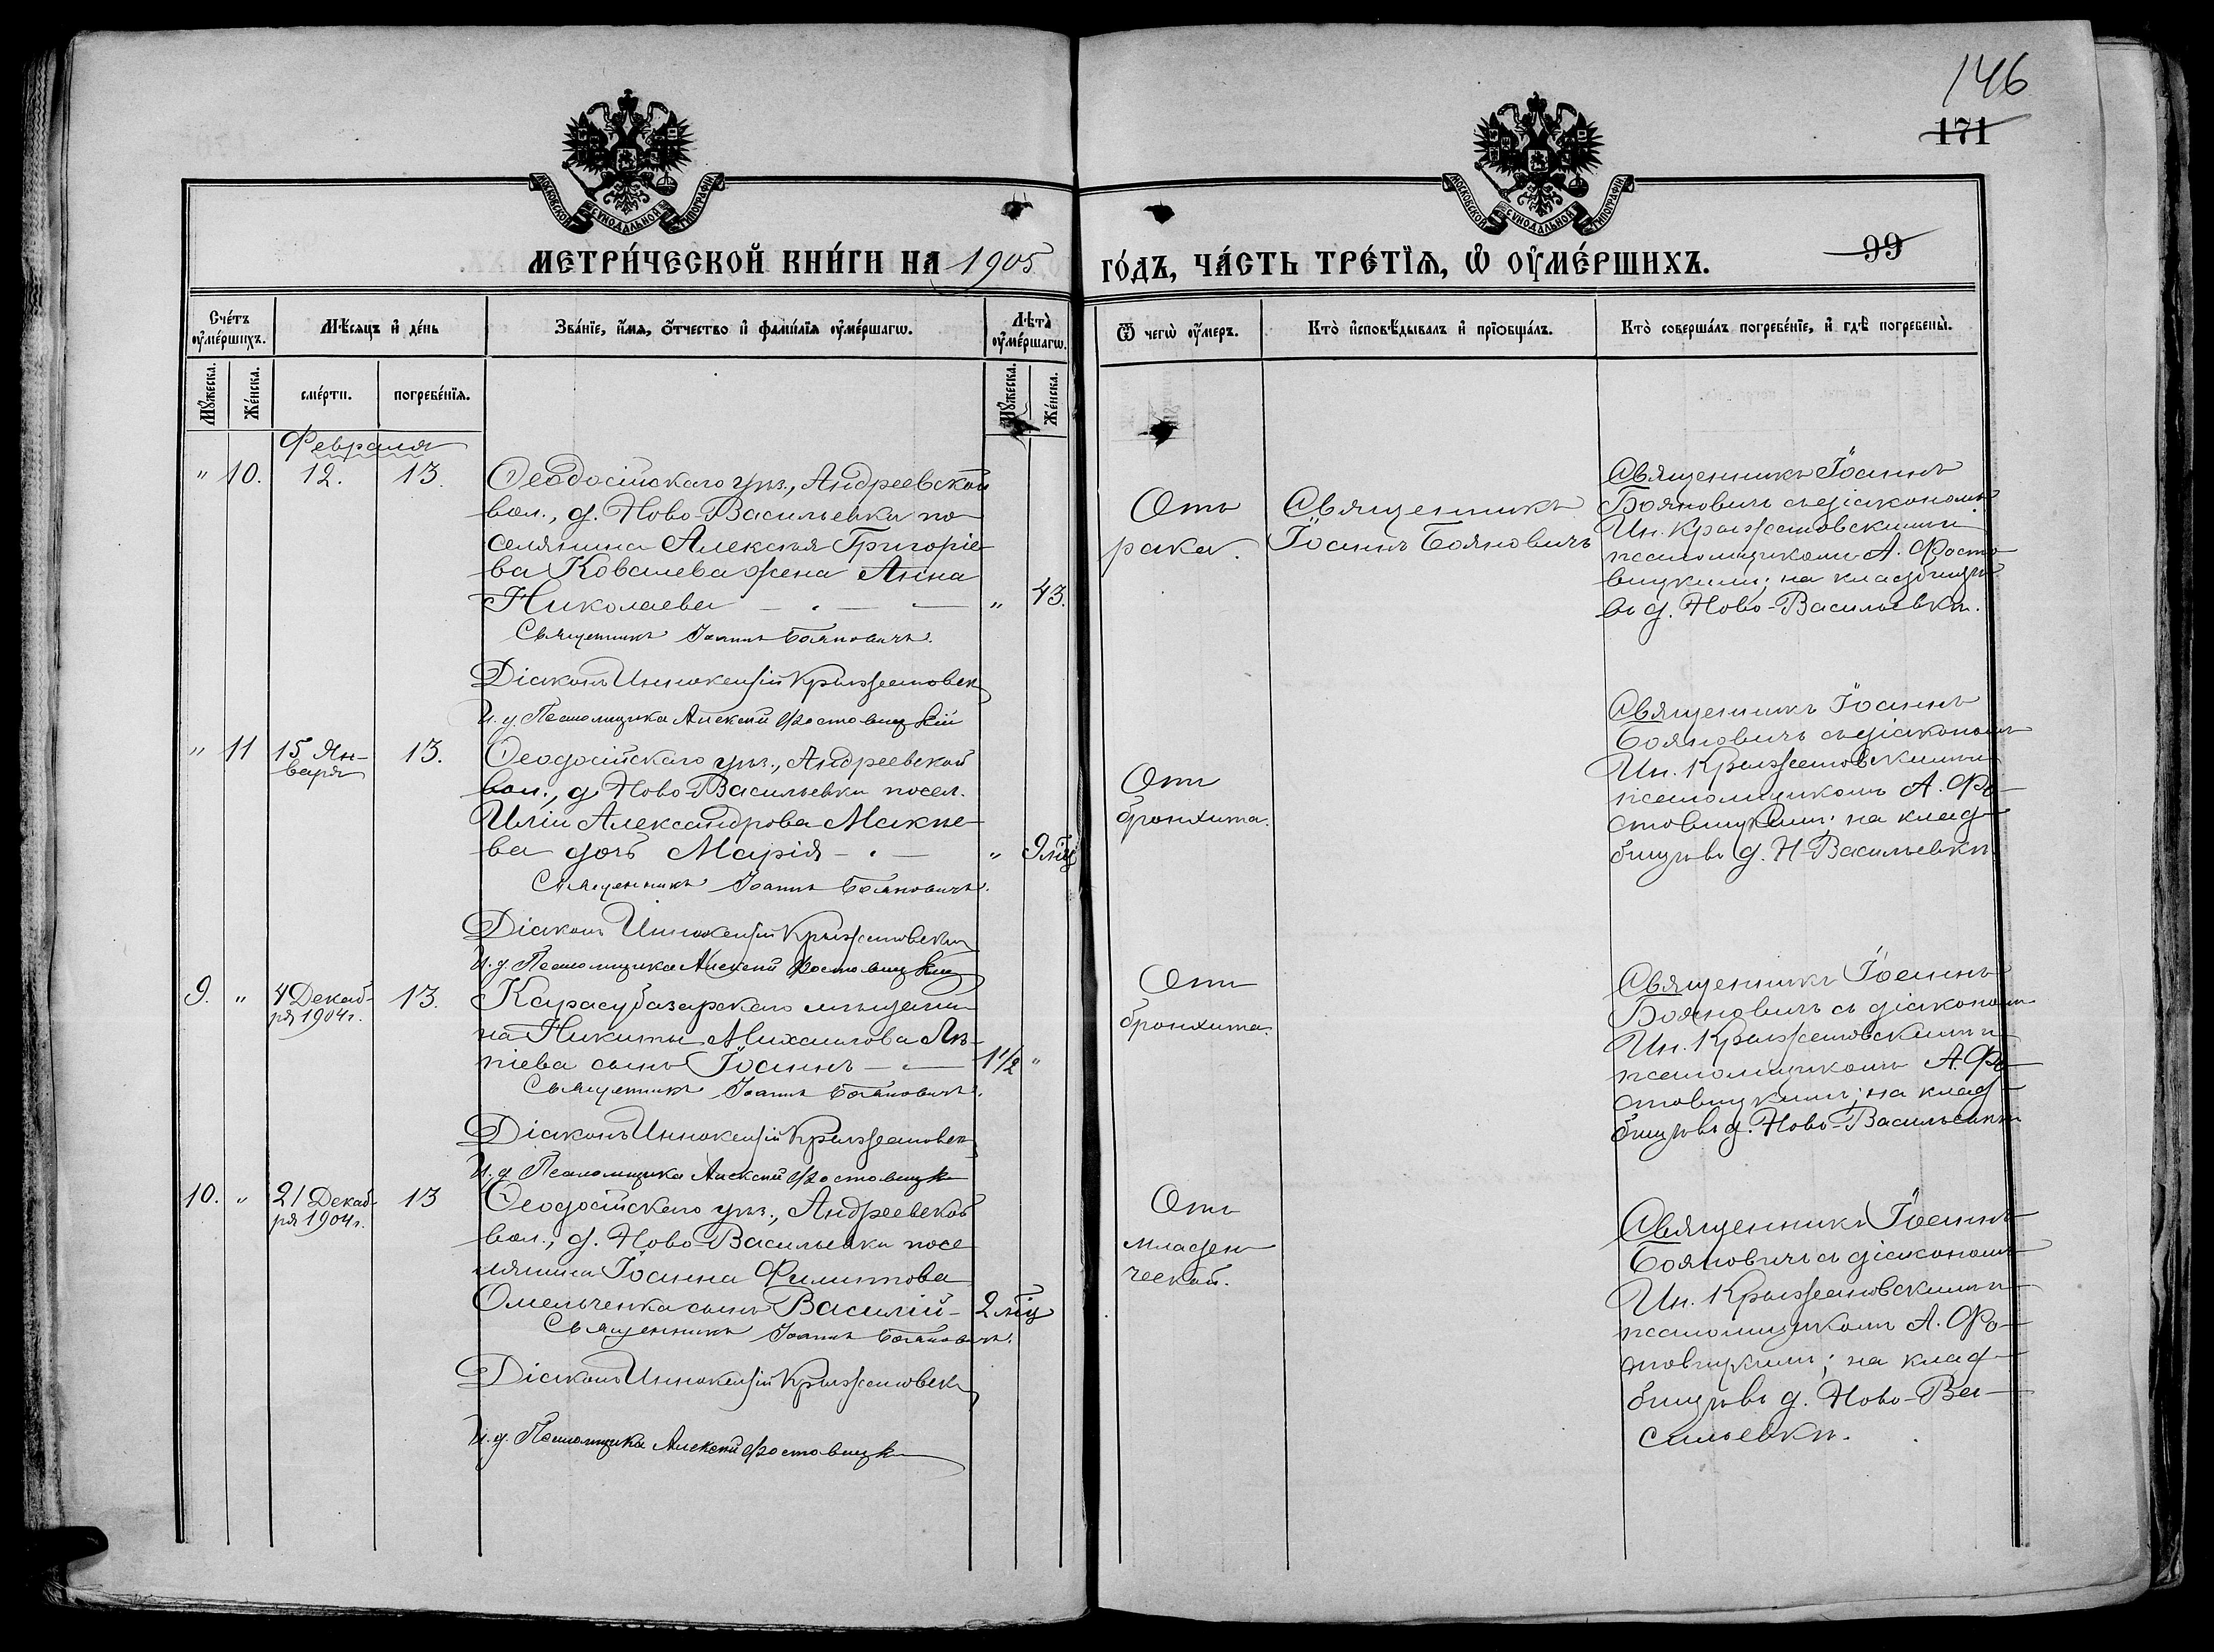 146
171
99
МОСКОВСКОЙ СѴНОДАЛЬНОЙ ТИПОГРАФІИ
МОСКОВСКОЙ СѴНОДАЛЬНОЙ ТИПОГРАФІИ
МЕТРИ́ЧЕСКОЙ КНИ́ГИ НА 1905
ГО́ДЪ, ЧА́СТЬ ТРЕ́ТЇѦ, Ѡ҆ ОУ҆МЕ́РШИХЪ.
Сче́тъ оу҆ме́ршихъ.
Мѣ́сѧцъ и҆ де́нь
Зва́нїе, и҆́мѧ, ѻ҆́тчество и҆ фами́лїѧ оу҆ме́ршагѡ.
Лѣта̀ оу҆ме́ршагѡ.
Ѿ чегѡ̀ оу҆́меръ.
Кто̀ и҆сповѣ́дывалъ и҆ прїѡбща́лъ.
Кто̀ соверша́лъ погребе́нїе, и҆ гдѣ̀ погребены̀.
Мꙋ́жеска.
Же́нска.
сме́рти.
погребе́нїѧ.
Мꙋ́жеска.
Же́нска.
Февраля
" 10. 12. 13.
Ѳеодосійскаго уѣз., Андреевской
вол., д. Ново-Васильевки по
селянина Алексѣя Григоріе
ва Ковалева жена Анна
Николаева " 43.
Священникъ Іоаннъ Бояновичъ.
Діаконъ Иннокентій Крыжановск
И. д. Псаломщика Алексій Фостовицкій
Отъ
рака.
Священникъ
Іоаннъ Бояновичъ
Священникъ Іоаннъ
Бояновичъ съ діакономъ
Ин. Крыжановскимъ и
псаломщикомъ А. Фосто
вицкимъ; на кладбищѣ
въ д. Ново-Васильевкѣ.
" 11 15 Ян-
варя 13.
Ѳеодосійскаго уѣз., Андреевской
вол., д. Ново Васильевки посел.
Иліи Александрова Макѣе
ва дочь Марія " 9 мц
Священникъ Іоаннъ Бояновичъ.
Діаконъ Иннокентій Крыжановскій
И. д. Псаломщика Алексій Фостовицкій
Отъ
бронхита.
Священникъ Іоаннъ
Бояновичъ съ діакономъ
Ин. Крыжановскимъ и
псаломщикомъ А. Фо-
стовицкимъ; на клад-
бищѣ въ д. Н-Васильевкѣ.
9. " 4 Декаб-
ря 1904 г. 13.
Карасубазарскаго мѣщани
на Никиты Михаилова
сынъ Іоаннъ 1 1/2 "
Священникъ Іоаннъ Бояновичъ.
Діаконъ Иннокентій Крыжановск
И. д. Псаломщика Алексій Фостовицк
Отъ
бронхита.
Священникъ Іоаннъ
Бояновичъ съ діакономъ
Ин. Крыжановскимъ и
псаломщикомъ А. Фо-
стовицкимъ; на клад-
бищѣ въ д. Ново-Васильевкѣ
10. " 21 Декаб-
ря 1904 г. 13
Ѳеодосійскаго уѣз., Андреевской
вол., д. Ново-Васильевки посе
лянина Іоанна Филиппова
Омельченка сынъ Василій- 2 мц
Священникъ Іоаннъ Бояновичъ.
Діаконъ Иннокентій Крыжановск
И. д. Псаломщика Алексій Фостовицк
Отъ
младен
ческой.
Священникъ Іоаннъ
Бояновичъ съ діакономъ
Ин. Крыжановскимъ и
псаломщикомъ А. Фо-
стовицкимъ; на клад-
бищѣ въ д. Ново-Ва-
сильевкѣ.